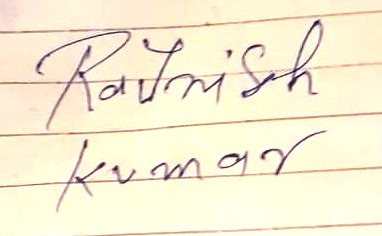 Rajnish
Kumar